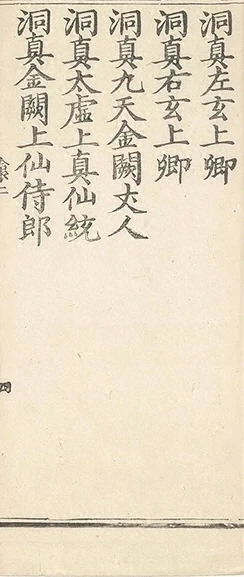 洞真左玄上卿
洞真右玄上卿
洞真九天金闕丈人
洞真太虛上真仙統
洞真金闕上仙侍郎
四